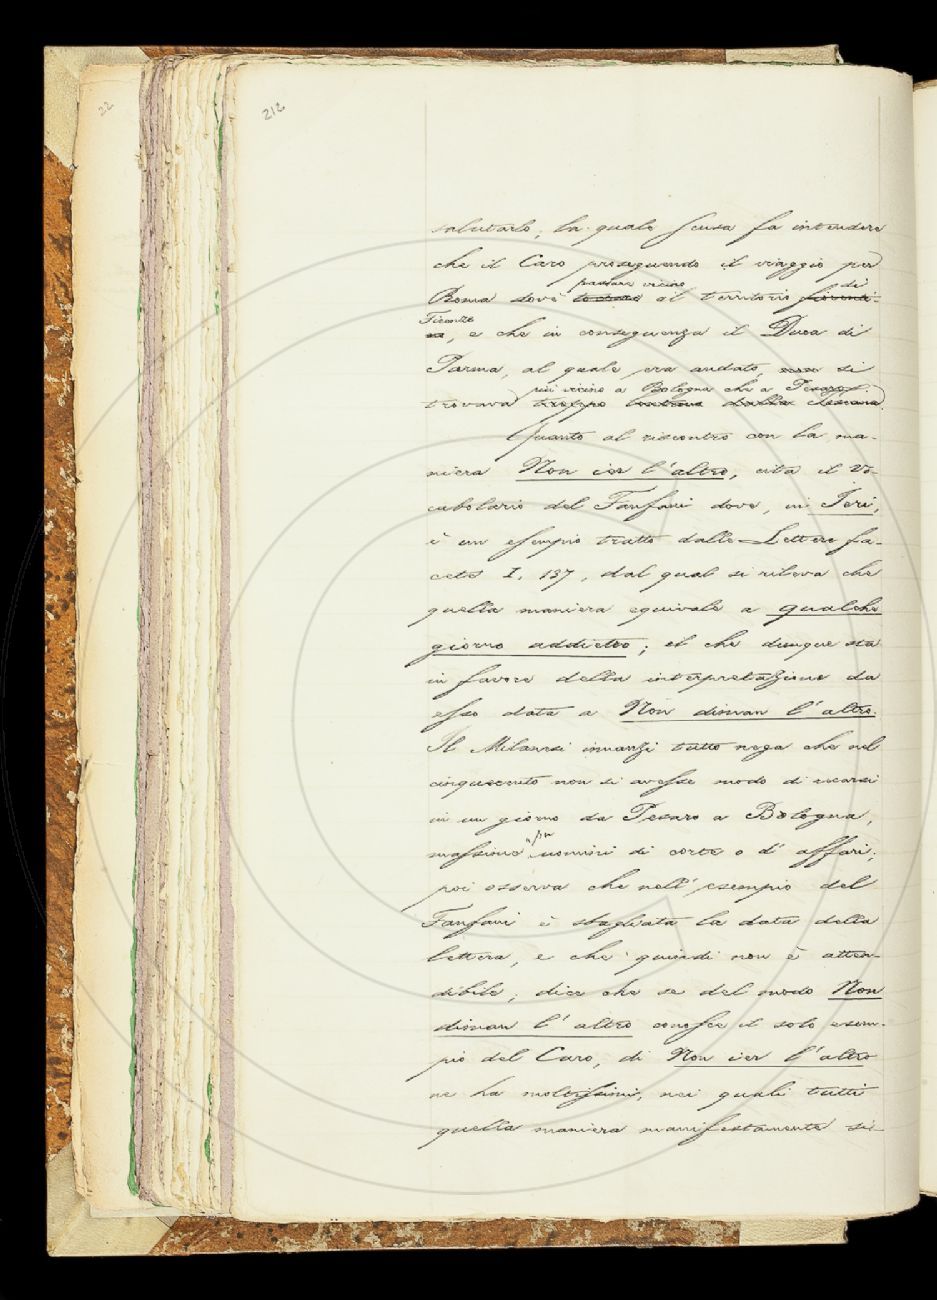 22
212
salutarlo; la quale scusa fa intendere
che il Caro proseguendo il viaggio per
passare vicino di
Roma dovè al territorio fiorenti-
Firenze
no, e che in conseguenza il Duca di
Parma, al quale era andato, non si
più vicino a Bologna che a Pesaro.
trovava troppo lontano dalla Toscana.
Quanto al riscontro con la ma-
niera Non ier l'altro, cita il Vo-
cabolario del Fanfani dove, in Ieri,
è un esempio tratto dalle Lettere fa-
cete I. 137, dal qual si rileva che
quella maniera equivale a qualche
giorno addietro; il che dunque sta
in favore della interpretazione da
esso data a Non diman l'altro.
Il Milanesi innanzi tutto nega che nel
cinquecento non si avesse modo di recarsi
in un giorno da Pesaro a Bologna,
per
massime uomini di corte o di affari;
poi osserva che nell'esempio del
Fanfani è sbagliata la data della
lettera, e che quindi non è atten-
dibile; dice che se del modo Non
diman l'altro conosce il solo esem-
pio del Caro, di Non ier l'altro
ne ha moltissimi, nei quali tutti
quella maniera manifestamente si-